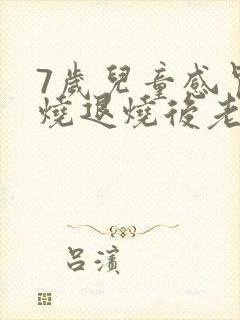 7歲兒童感
燒退燒後老
呂濱